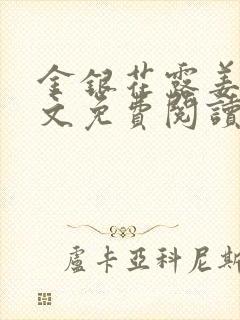 金銀花露姜
文免費閱讀
盧卡亞科尼斯